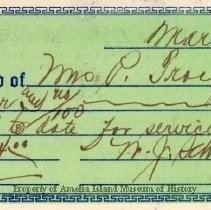 Mar
of Wm. P. Troe
and no
100
to date for service
.00
W. J. Sch
Property of Amelia Island Museum of History